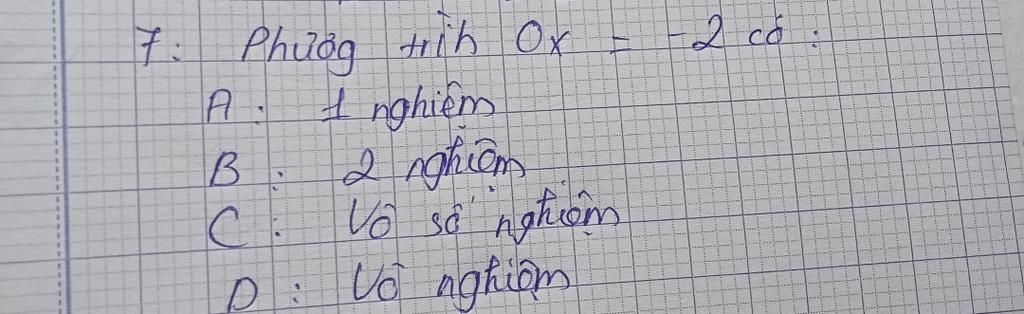 7: Phương trìh 0x = -2 có:
A: 1 nghiệm
B: 2 nghiệm
C: Vô số nghiệm
D: Vô nghiệm